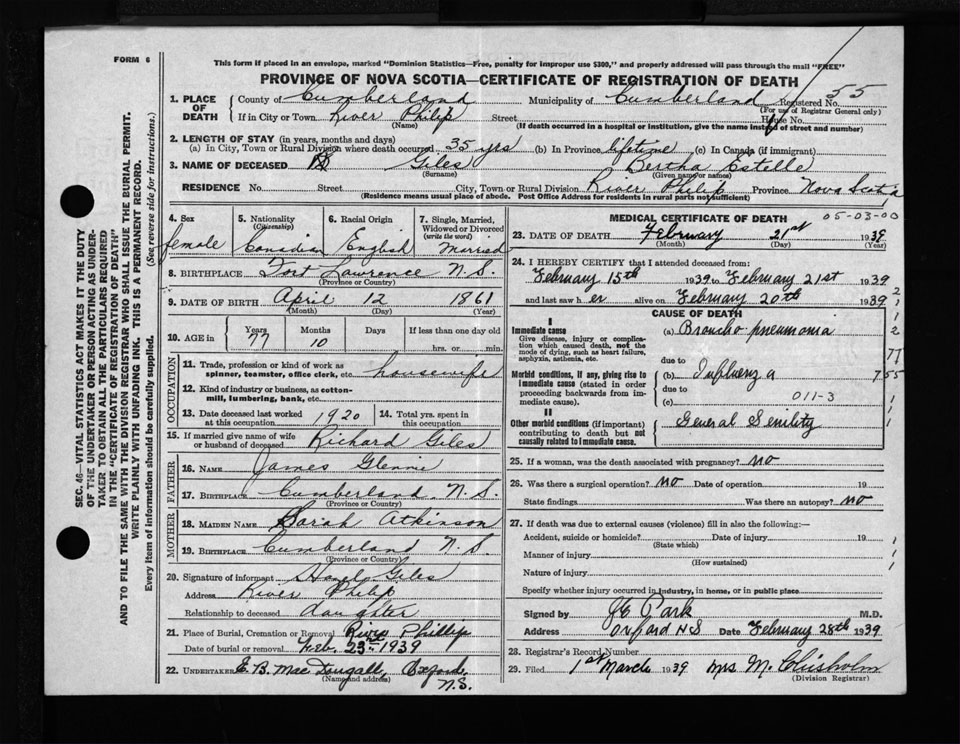 FORM 6
This form if placed in an envelope, marked "Dominion Statistics—Free, penalty for improper use $300," and properly addressed will pass through the mail "FREE"
PROVINCE OF NOVA SCOTIA—CERTIFICATE OF REGISTRATION OF DEATH
SEC. 46—VITAL STATISTICS ACT MAKES IT THE DUTY
OF THE UNDERTAKER OR PERSON ACTING AS UNDER-
TAKER TO OBTAIN ALL THE PARTICULARS REQUIRED
IN THE "CERTIFICATE OF REGISTRATION OF DEATH"
AND TO FILE THE SAME WITH THE DIVISION REGISTRAR WHO SHALL ISSUE THE BURIAL PERMIT.
WRITE PLAINLY WITH UNFADING INK. THIS IS A PERMANENT RECORD.
Every item of information should be carefully supplied. (See reverse side for instructions.)
1. PLACE OF DEATH County of Cumberland Municipality of Cumberland Registered No. 55
(For use of Registrar General only)
If in City or Town River Philip Street House No.
(Name) (If death occurred in a hospital or institution, give the name instead of street and number)
2. LENGTH OF STAY (in years, months and days)
(a) In City, Town or Rural Division where death occurred 35 yrs (b) In Province lifetime (c) In Canada (if immigrant)
3. NAME OF DECEASED Giles Bertha Estelle
(Surname) (Given name or names)
RESIDENCE No. Street City, Town or Rural Division River Philip Province Nova Scotia
(Residence means usual place of abode. Post Office Address for residents in rural parts not sufficient)
4. Sex 5. Nationality (Citizenship) 6. Racial Origin 7. Single, Married, Widowed or Divorced (write the word)
female Canadian English Married
8. BIRTHPLACE Fort Lawrence N.S.
(Province or Country)
9. DATE OF BIRTH April 12 1861
(Month) (Day) (Year)
10. AGE in Years Months Days If less than one day old
77 10 hrs. or min.
OCCUPATION
11. Trade, profession or kind of work as spinner, teamster, office clerk, etc. housewife
12. Kind of industry or business, as cotton-mill, lumbering, bank, etc.
13. Date deceased last worked at this occupation 1920 14. Total yrs. spent in this occupation
15. If married give name of wife or husband of deceased Richard Giles
FATHER
16. NAME James Glennie
17. BIRTHPLACE Cumberland N.S.
(Province or Country)
MOTHER
18. MAIDEN NAME Sarah Atkinson
19. BIRTHPLACE Cumberland N.S.
(Province or Country)
20. Signature of informant Hazel Giles
Address River Philip
Relationship to deceased daughter
21. Place of Burial, Cremation or Removal River Phillip
Date of burial or removal Feb. 23rd 1939
22. UNDERTAKER E. B. MacDougall, Oxford, N.S.
(Name and address)
MEDICAL CERTIFICATE OF DEATH 05-03-00
23. DATE OF DEATH February 21st 1939
(Month) (Day) (Year)
24. I HEREBY CERTIFY that I attended deceased from:
February 15th 1939 to February 21st 1939
and last saw h er alive on February 20th 1939
CAUSE OF DEATH
I
Immediate cause (a) Broncho pneumonia
Give disease, injury or complication which caused death, not the mode of dying, such as heart failure, asphyxia, asthenia, etc.
due to
Morbid conditions, if any, giving rise to immediate cause (stated in order proceeding backwards from immediate cause). (b) Influenza
due to
(c) 011-3
II
Other morbid conditions (if important) contributing to death but not causally related to immediate cause. General Senility
25. If a woman, was the death associated with pregnancy? no
26. Was there a surgical operation? no Date of operation 19
State findings Was there an autopsy? no
27. If death was due to external causes (violence) fill in also the following:—
Accident, suicide or homicide? Date of injury 19
(State which)
Manner of injury
(How sustained)
Nature of injury
Specify whether injury occurred in industry, in home, or in public place
Signed by JE Park M.D.
Address Oxford NS Date February 28th 1939
28. Registrar's Record Number
29. Filed 1st March 1939 Mrs M. Chisholm
(Division Registrar)